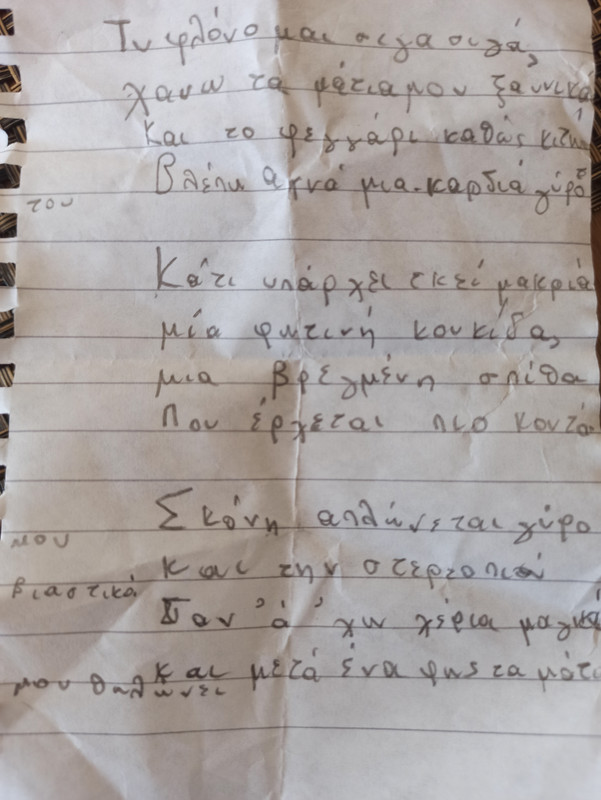 Τυφλόνομαι σιγα σιγά,
χανω τα μάτια μου ξαυνικά
και το φεγγάρι καθώς κιτά
Βλέπω αχνά μια καρδιά γύρο
του
Κάτι υπάρχει εκεί μακριά
μία φωτινή κουκίδα,
μια βρεγμένη σπίθα
Που έρχεται πιο κοντά
Σκόνη απλώνεται γύρο
μου
και την στερτοπιαν
βιαστικά
Σαν 'ά' χω χέρια μαγικά
και μετά ένα φως τα μάτι
μου θαλώνει